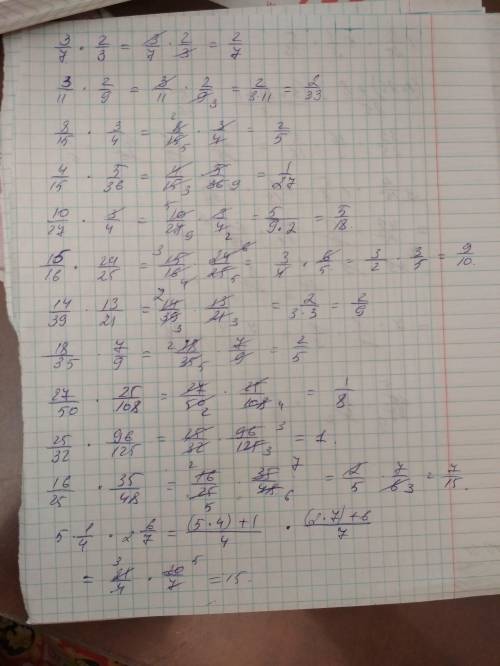 3/7 · 2/3 = 3/7 · 2/3 = 2/7
3/11 · 2/9 = 3/11 · 2/9 3 = 2/3·11 = 2/33
8/15 · 3/4 = 2 8/15 5 · 3/4 = 2/5
4/15 · 5/36 = 4/15 3 · 5/36 9 = 1/27
10/27 · 3/4 = 5 10/27 9 · 3/4 2 = 5/9·2 = 5/18
15/16 · 24/25 = 3 15/16 4 · 24/25 6 5 = 3/4 · 6/5 = 3/2 · 3/5 = 9/10
14/39 · 13/21 = 2 14/39 3 · 13/21 3 = 2/3·3 = 2/9
18/35 · 7/9 = 2 18/35 5 · 7/9 = 2/5
27/50 · 25/108 = 27/50 2 · 25/108 4 = 1/8
25/32 · 96/125 = 25/32 · 96/125 3 3 = 1.
16/25 · 35/48 = 2 16/25 5 · 35/48 7 6 = 2/5 · 7/6 3 = 7/15
5 · 1/4 · 2 6/7 = (5·4)+1/4 · (2·7)+6/7
= 3 21/4 · 20/7 5 = 15.